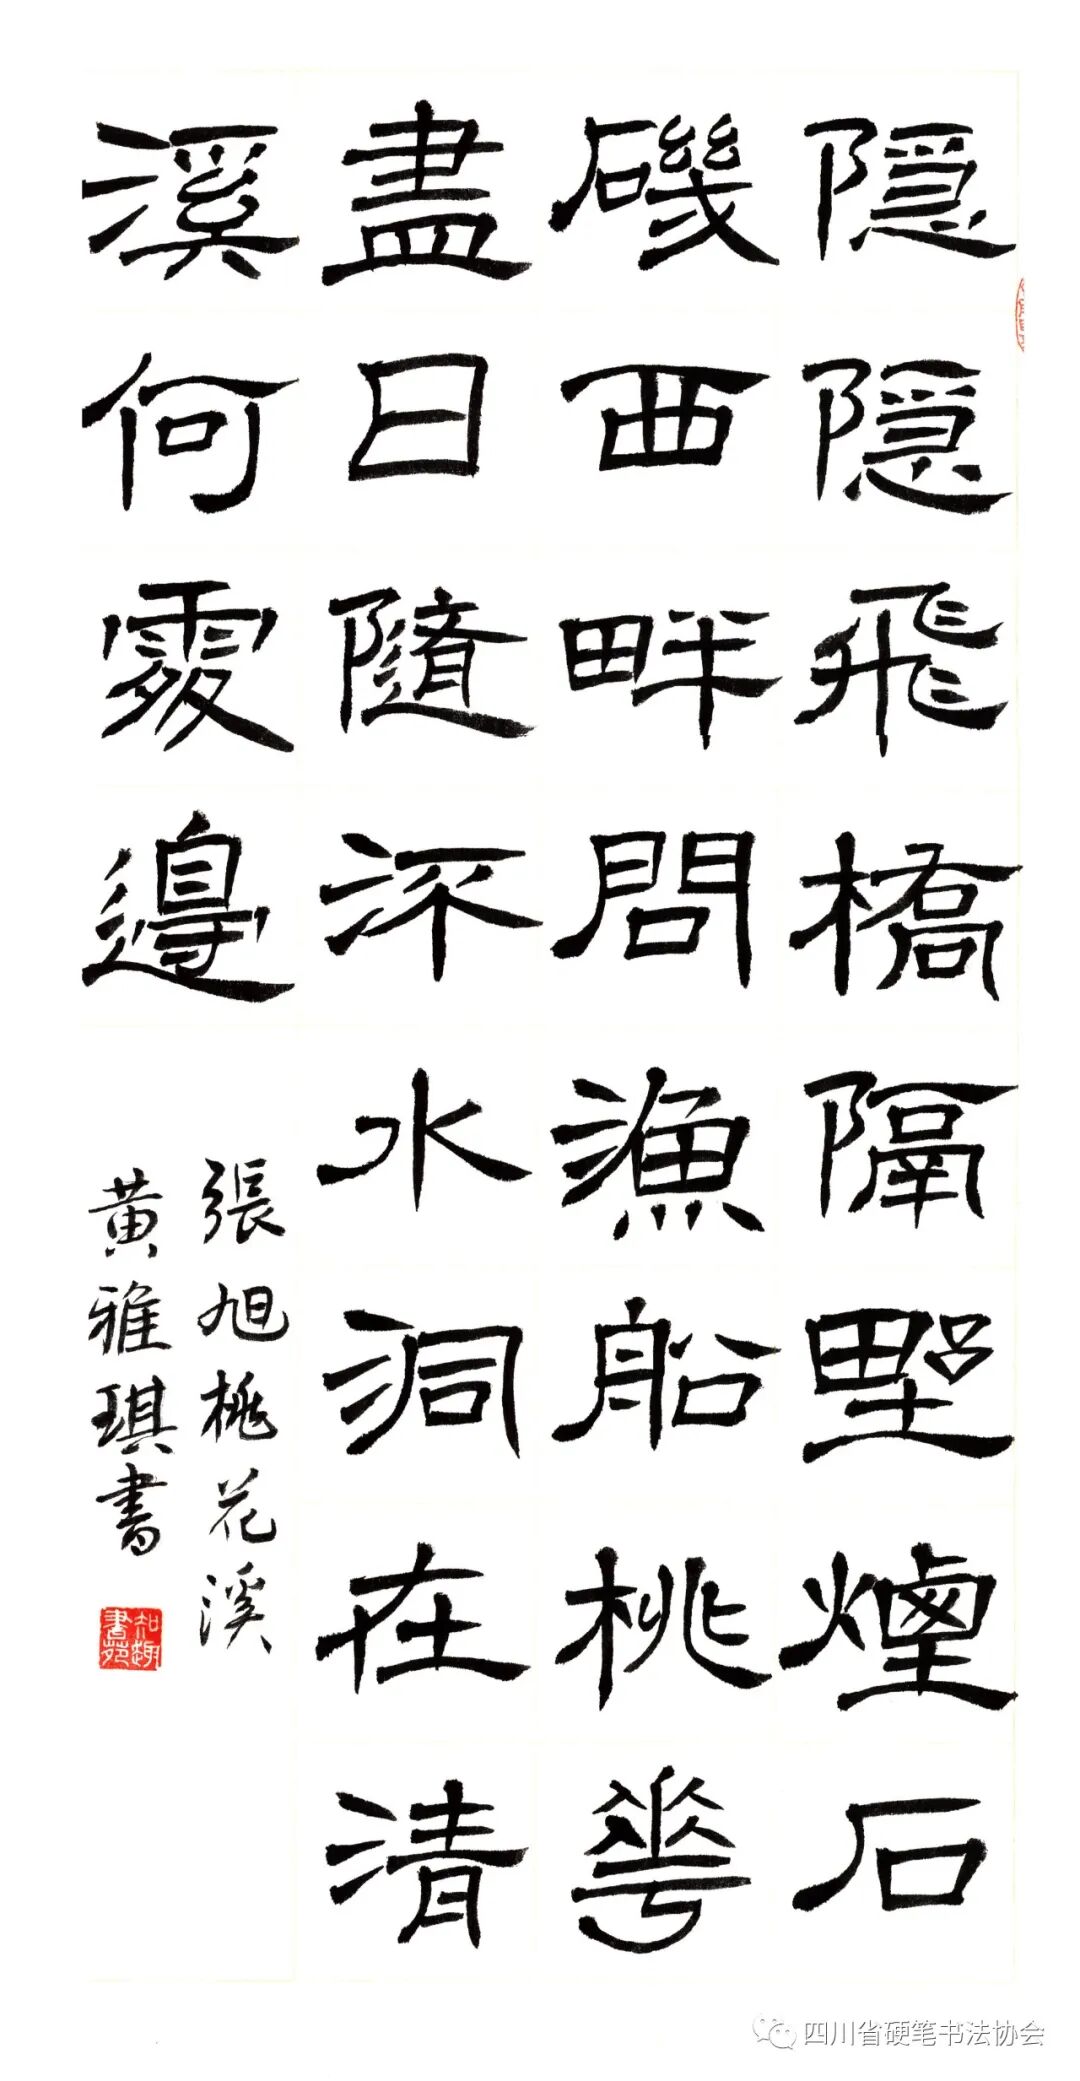 隱隱飛橋隔野煙石
磯西畔問漁船桃花
盡日隨流水洞在清
溪何處邊
張旭桃花溪
黄雅琪書
知趣書苑
四川省硬笔书法协会